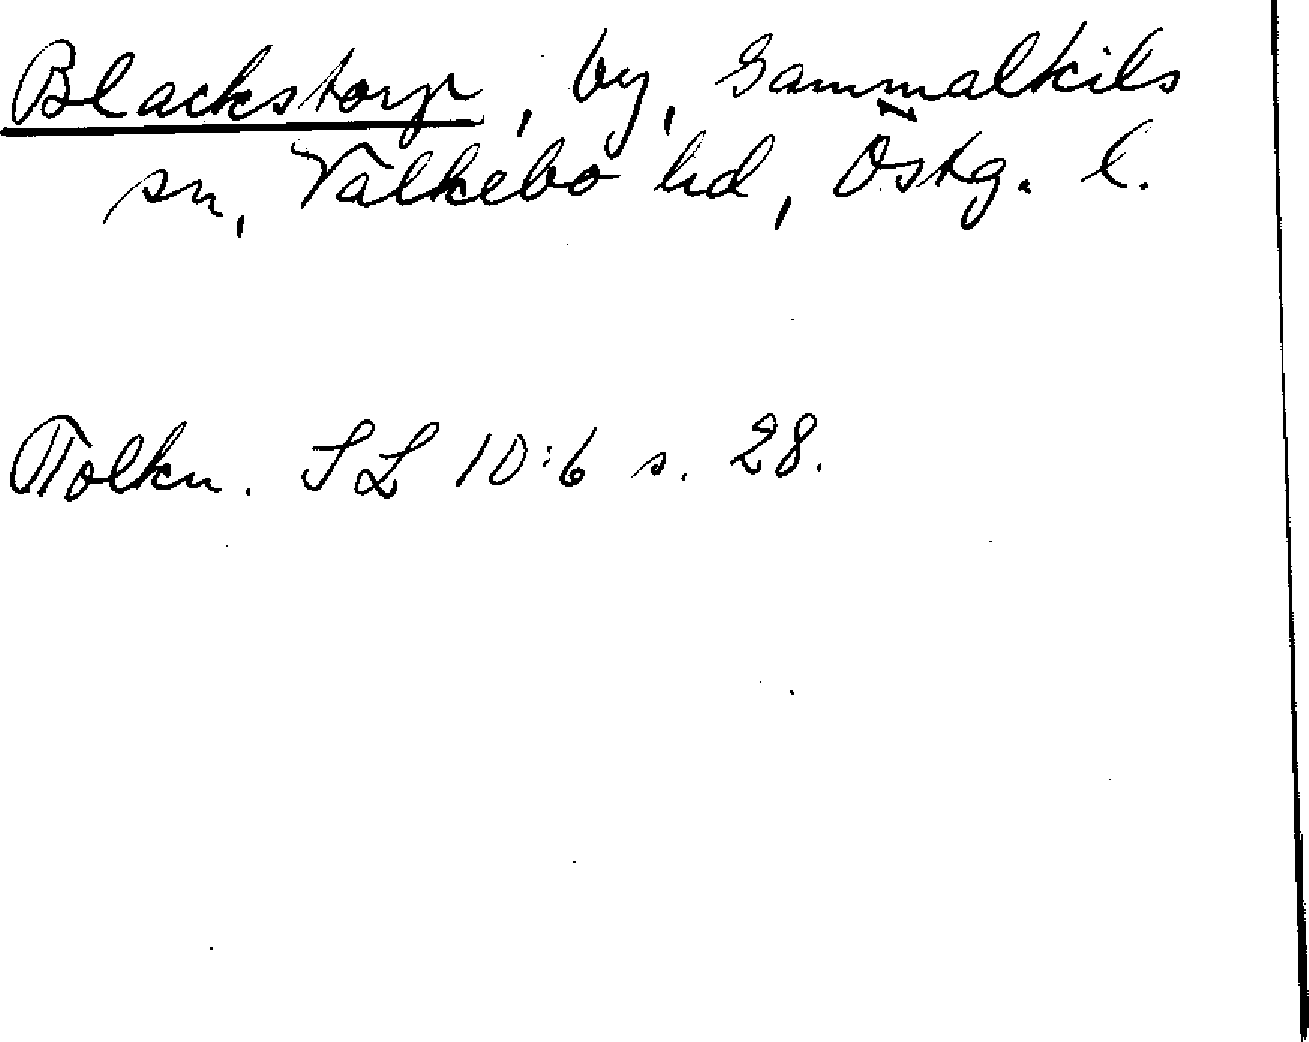 Blackstorp, by, Gammalkils
sn, Valkebo hd, Östg. l.
Tolkn. SL 10:6 s. 28.